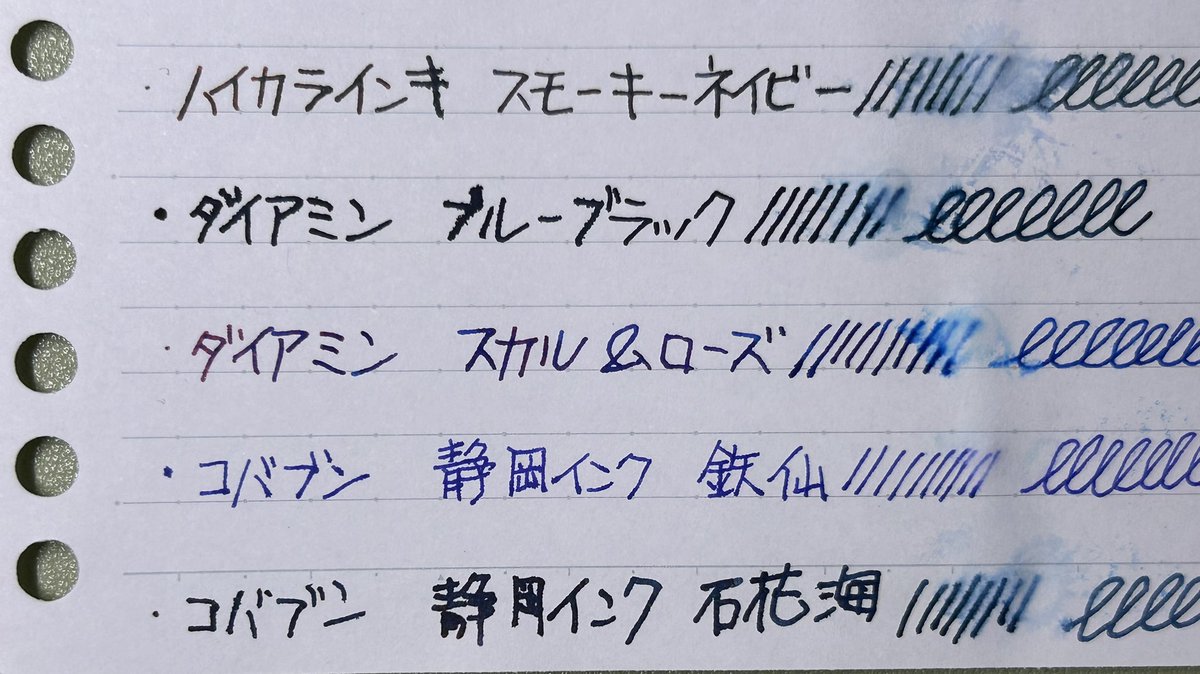 ・ハイカラインキ スモーキーネイビー
・ダイアミン ブルーブラック
・ダイアミン スカル&ローズ
・コバブン 静岡インク 鉄仙
・コバブン 静岡インク 石花海